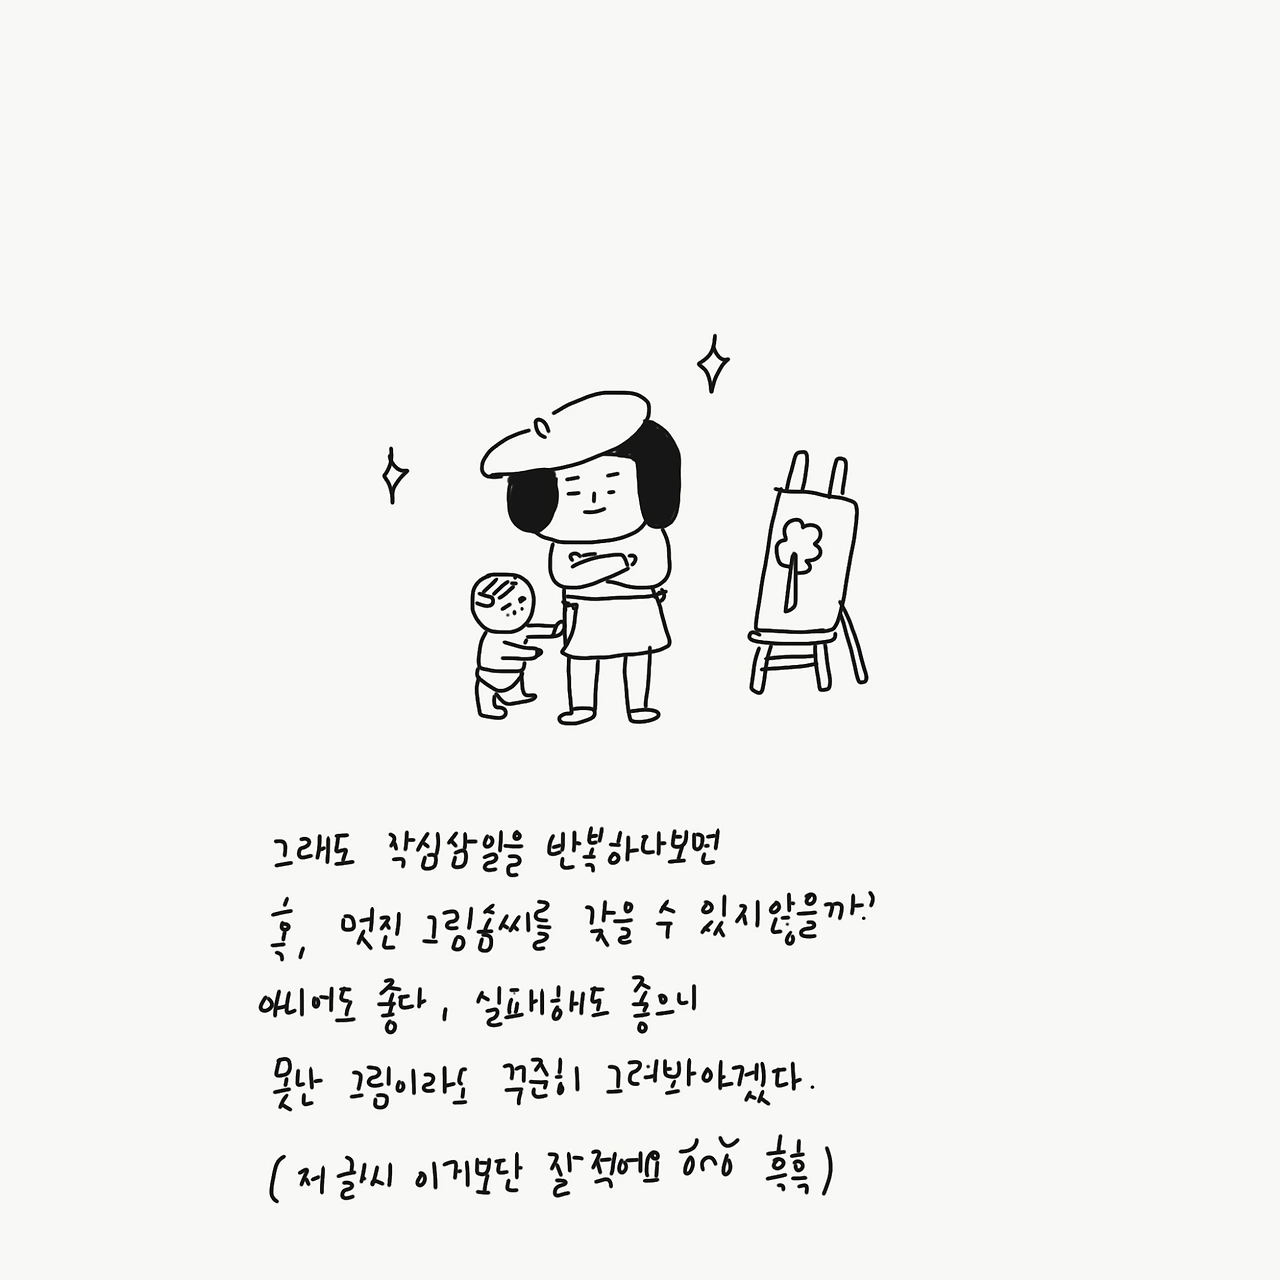 그래도 작심삼일을 반복하다보면
혹, 멋진 그림솜씨를 갖을 수 있지않을까?
아니어도 좋다, 실패해도 좋으니
못난 그림이라도 꾸준히 그려봐야겠다.
(저 글씨 이거보단 잘 적어요 ㅠㅠ 흑흑)